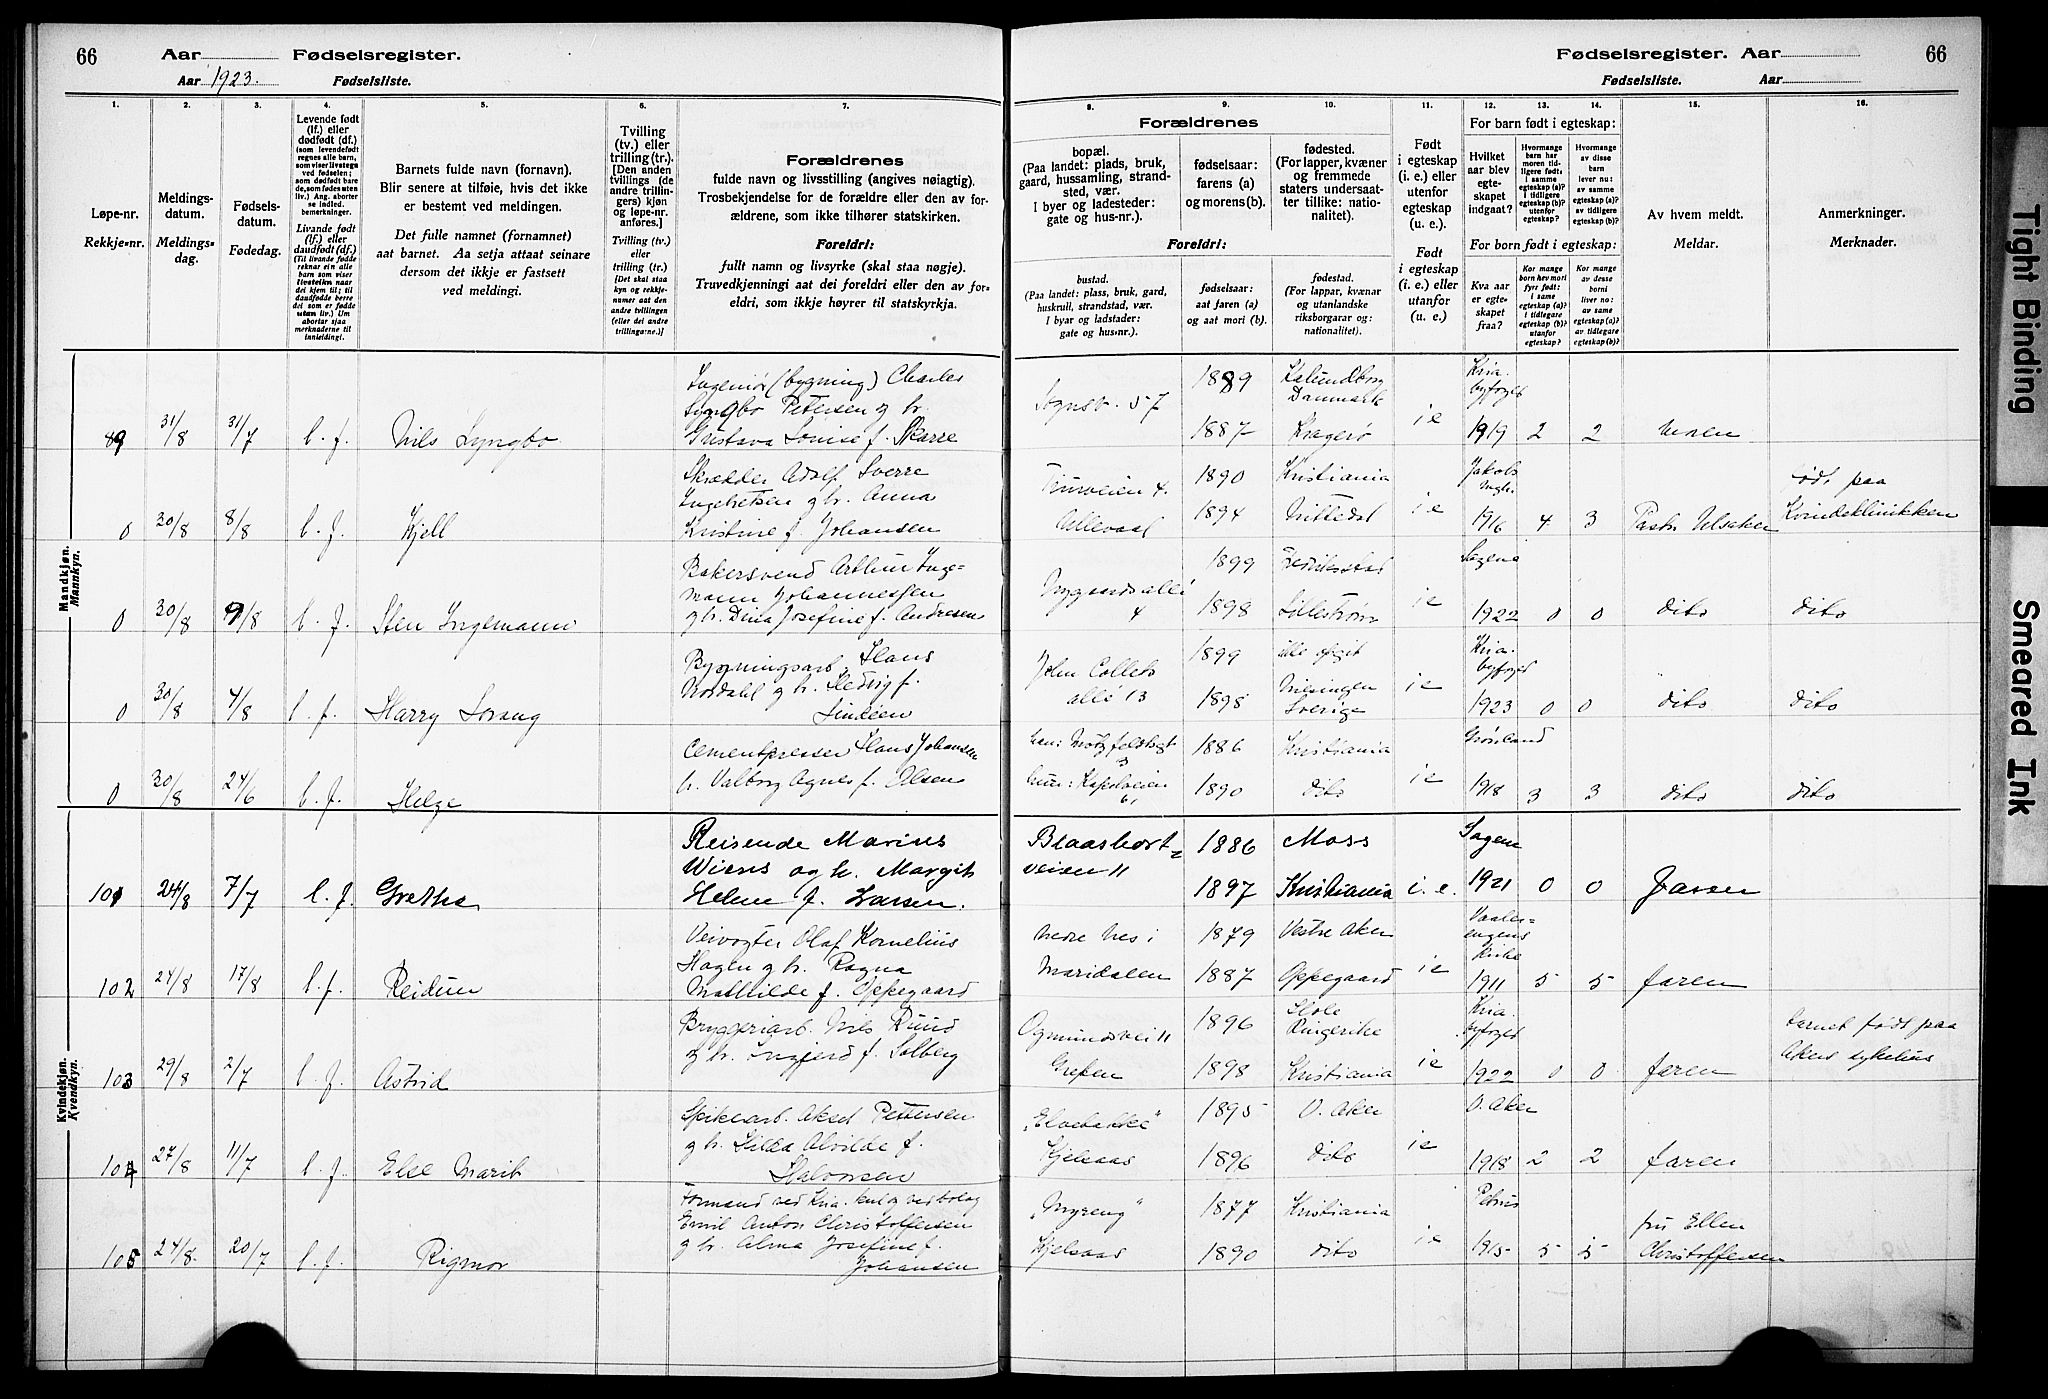 66 Aar Fødselsregister.
Aar 1923. Fødselsliste.
Fødselsregister. Aar 66
Fødselsliste. Aar
1. 2. 3. 4. 5. 6. 7.
Løpe-nr.
Rekkje-nr.
Meldings-
datum.
Meldings-
dag.
Fødsels-
datum.
Fødedag.
Levende født
(lf.) eller
dødfødt (df.)
Livande født
(lf.) eller
daudfødt (df.)
Barnets fulde navn (fornavn).
Blir senere at tilføie, hvis det ikke
er bestemt ved meldingen.
Det fulle namnet (fornamnet)
aat barnet. Aa setja attaat seinare
dersom det ikkje er fastsett
ved meldingi.
Tvilling
(tv.) eller
trilling (tr.).
[Den anden
tvillings (de
andre trillin-
gers) kjøn
og løpe-nr.
anføres.]
Tvilling (tv.)
eller
trilling (tr.)
[Det skal staa
kyn og rekkje-
numer aat den
andre tvillingen
(eller dei andre
trillingarne.)]
Forældrenes
fulde navn og livsstilling (angives nøiagtig).
Trosbekjendelse for de forældre eller den av for-
ældrene, som ikke tilhører statskirken.
Foreldri:
fullt namn og livsyrke (skal staa nøgje).
Truvedkjenningi aat dei foreldri eller den av for-
eldri, som ikkje høyrer til statskyrkja.
8. 9. 10. 11. 12. 13. 14. 15. 16.
Forældrenes
bopæl.
(Paa landet: plads, bruk,
gaard, hussamling, strand-
sted, vær.
I byer og ladesteder:
gate og hus-nr.).
Foreldri:
bustad.
(Paa landet: plass, bruk, gard,
huskrull, strandstad, vær.
I byar og ladstader:
gate og hus-nr.).
fødselsaar:
farens (a)
og morens (b).
fødselsaar:
aat faren (a)
og aat mori (b).
fødested.
(For lapper, kvæner
og fremmede
staters undersaat-
ter tillike: natio-
nalitet).
fødestad.
(For lappar, kvænar
og utanlandske
riksborgarar og:
nationalitet).
Født
i egteskap
(i. e.) eller
utenfor
egteskap
(u. e.).
Født
i egteskap
(i. e.) eller
utanfor
(u. e.).
For barn født i egteskap:
Hvilket
aar blev
egte-
skapet
indgaat?
For born født i egteskap:
Kva aar
er egte-
skapet
fraa?
Av hvem meldt.
Meldar.
Anmerkninger.
Merknader.
Mandkjøn.
Mannkyn.
89 31/8 31/7 l. f. Nils Lyngbo
Ingeniør (bygning) Charles
Lyngbo Petersen g hr.
Gustava Louise f. Skarre
Sognsv. 57
1889 Kalundborg Danmark
1887 Kragerø
i e Kria. byfoged 1919 2 2 moren
0 30/8 8/8 l. f. Kjell
Skrædder Adolf Sverre
Ingebretsen g hr. Anna
Kristine f. Johansen
Ullevaal
1890 Kristiania
1894 Nittedal
i e Jakobs 1916 4 3 Pastor Ulsaker
født paa Kvindeklinikken
0 30/8 9/8 l. f. Sten Ingemann
Bakersvend Arthur Inge-
mann Johannessen
g hr. Dina Josefine f. Andresen
Nygaardsallé 4
1899 Fredriksstad
1898 Lillestrøm
i e Sagene 1922 0 0 dito dito
0 30/8 4/8 l. f. Harry Svang
Bygningsarb. Hans
Nordahl g hr. Hedvig f.
John Collets
allé 13
1899 ikke opgit
1898 Sverige
i e Kria. byfoged 1923 0 0 dito dito
0 30/8 24/6 l. f. Helge
Cementpresser Hans Johansen
hr. Valborg Agnes f. Olsen
han: Motzfeldtsgt 3
hun: Kapelveien 61
1886 Kristiania
1890 dito
i e Grønland 1918 3 3 dito dito
Kvindekjøn.
Kvendkyn.
101 24/8 7/7 l. f. Grethe
Reisende Marius
Wiers og h. Margit
Helene f. Larsen.
Blaasbort-
veien 11
1886 Moss
1897 Kristiania
i. e. Sagene 1921 0 0 Faren
102 24/8 17/8 l. f. Reidun
Veivogter Olaf Kornelius
Hagen g hr. Ragna
Mathilde f. Oppegaard
Nedre Nes i
Maridalen
1879 Vestre Aker
1887 Oppegaard
i e Vaaler-
engens
Kirke
1911 5 5 faren
103 29/8 2/7 l. f. Astrid
Bryggeriarb. Nils Ruud
g hr. Ingjerd f. Solberg
Ogmundsvei 11
Grefsen
1896 Hole Ringerike
1898 Kristiania
i e Kria. byfoged 1922 0 0 faren
barnet født paa
Akers sykehus
104 27/8 11/7 l. f. Else Marit
Spikerarb. Aksel Pettersen
g hr. Hilda Alvilde f.
Halvorsen
"Elvebakke"
Kjelsaas
1895 V. Aker
1896 dito
i e V. Aker 1918 2 2 faren
105 24/8. 20/7 l. f. Rigmor
Formand ved Kria. kul g vedbolag
Emil Anton Christoffersen
g hr. Alma Josefine f.
Johansen
"Myreng"
Kjelsaas
1877 Kristiania
1890 dito
i e Petrus 1915 5 5 fru Ellen
Christoffersen
Tight Binding
Smeared Ink